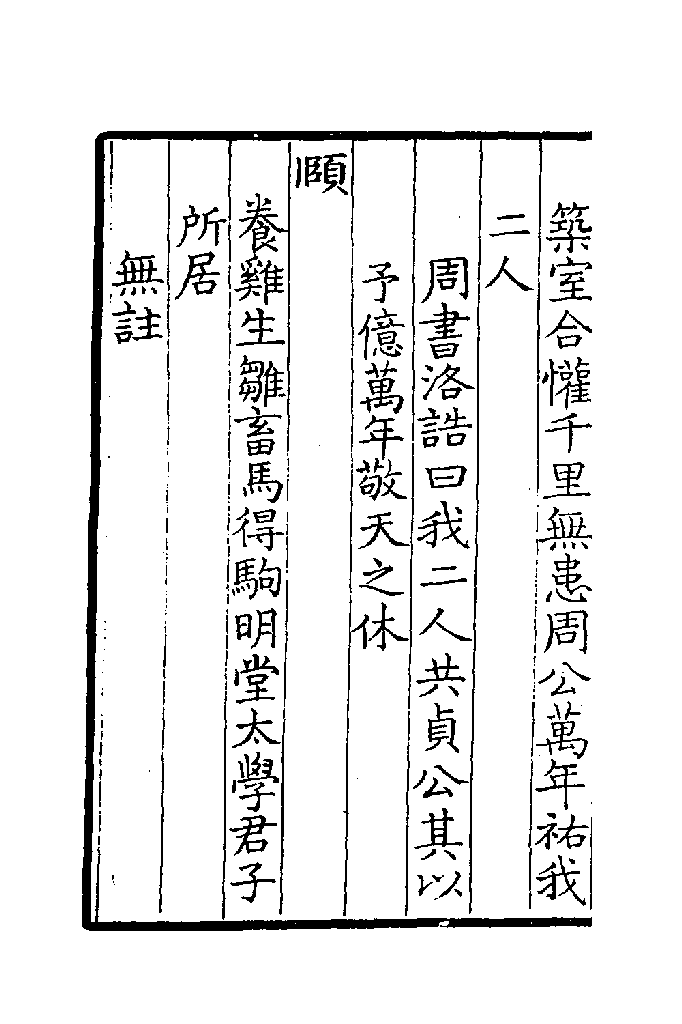 築室合懽千里無患周公萬年祐我
二人
周書洛誥曰我二人共貞公其以
予億萬年敬天之休
頤
養雞生雛畜馬得駒明堂太學君子
所居
無註